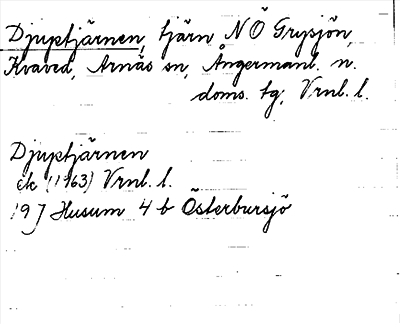 Djuptjärnen, tjärn NÖ Grysjön,
Kvaved, Arnäs sn, Ångermanl. n.
doms. tg, Vrnl. l.
Djuptjärnen
ek (1963) Vrnl. l.
19 J Husum 4 b Österbursjö